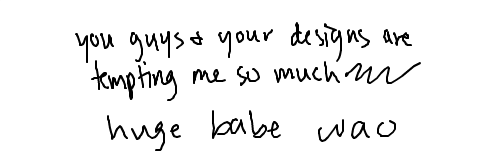 you guys & your designs are
tempting me so much
huge babe wao